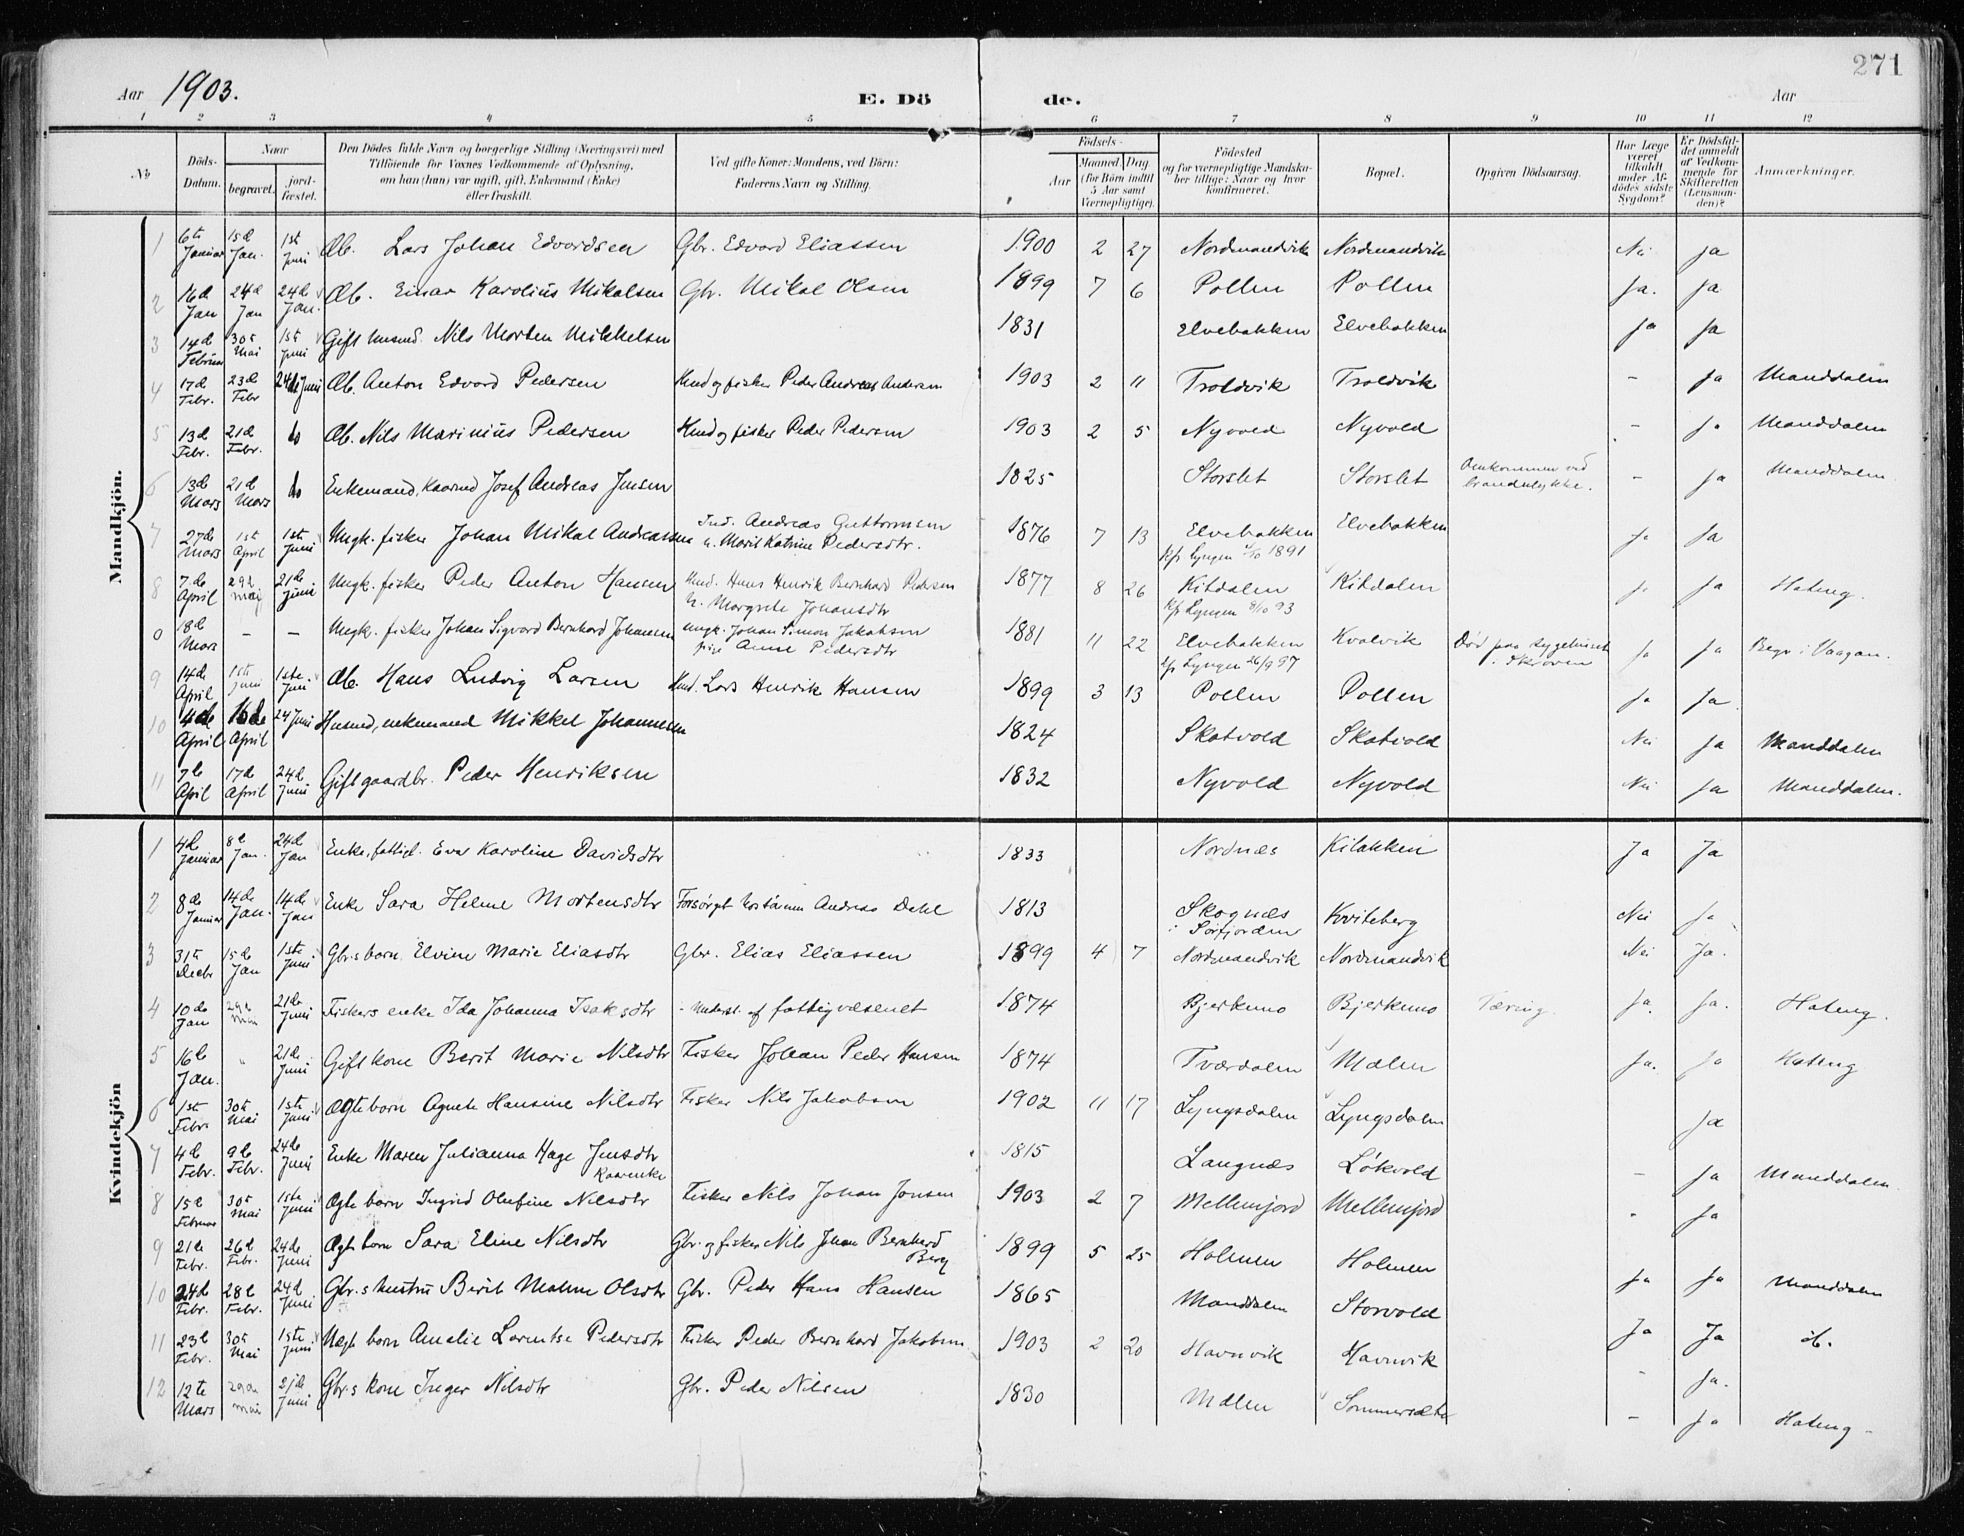 271
Aar 1903. E. Dö de. Aar
1 2 3 4 5 6 7 8 9 10 11 12
No Döds-Datum. Naar begravet. jord-fæstet.
Den Dödes fulde Navn og borgerlige Stilling (Næringsvei) med Tilföiende for Voxnes Vedkommende af Oplysning, om han (hun) var ugift, gift, Enkemand (Enke) eller fraskilt.
Ved gifte Koner: Mandens, ved Börn: Faderens Navn og Stilling.
Födsels- Aar Maaned. Dag. (for Börn indtil 5 Aar samt Værnepligtige).
Födested og for værnepligtige Mandskaber tillige: Naar og hvor konfirmeret.
Bopæl.
Opgiven Dödsaarsag.
Har Læge været tilkaldt under Afdödes sidste Sygdom?
Er Dödsfaldet anmeldt af Vedkommende for Skifteretten (Lensmanden)?
Anmærkninger.
Mandkjön.
1 6te Januar 15d Jan. 1st Juni Æb. Lars Johan Edvardsen Gbr. Edvard Eliassen 1900 2 27 Nordmandvik Nordmandvik Nei Ja
2 16d Jan 24d Jan 24d Jan. Æb. Einar Karolius Mikalsen Gbr. Mikal Olsen 1899 7 6 Pollen Pollen Ja. Ja
3 14d Februar 30t Mai 1st Juni Gift husmd. Nils Morten Mikkelsen 1831 Elvebakken Elvebakken Ja Ja
4 17d Febr. 23d Febr 24de Juni Æb. Anton Edvard Pedersen Hmd og fisker Peder Andreas Andersen 1903 2 11 Troldvik Troldvik - Ja Manddalen
5 13d Febr. 21d Febr. do Æb. Nils Marinius Pedersen Hmd og fisker Peder Pedersen 1903 2 5 Nyvold Nyvold - Ja Manddalen
6 13d Mars 21d Mars do Enkemand, Kaarmd Josef Andreas Jensen 1825 Storslet Storslet Omkommen ved brandulykke. - Ja Manddalen
7 27de Mars 1st April 1st Juni Ungk. fisker Johan Mikal Andreassen Ind. Andreas Guttormsen u. Marit Katrine Pedersdtr. 1876 7 13 Elvebakken kf. Lyngen 4/10 1891 Elvebakken Ja Ja
8 7de April 29d Mai 21de Juni Ungk. fisker Peder Anton Hansen Hmd. Hans Henrik Bernhard Pedersen u. Margrete Johansdtr 1877 8 26 Kitdalen kf. Lyngen 8/10 93 Kitdalen Ja Ja Hateng.
0 18d Mars - - Ungk. fisker Johan Sigvard Bernhard Johansen Ungk. Johan Simon Jakobsen pige Anne Pedersdtr 1881 11 22 Elvebakken kf. Lyngen 26/9 97 Kvalvik Död paa sygehuset i Skroven Ja Ja Begr. i Vaagan.
9 14d April 1st Juni 1ste Juni Æb. Hans Ludvig Larsen Hmd. Lars Henrik Hansen 1899 3 13 Pollen Pollen Ja Ja
10 4de April 16de April 24 Juni Husmd, enkemand Mikkel Johannesen 1824 Skatvold Skatvold Nei Ja Manddalen
11 7de April 17de April 24d Juni Gift gaardbr. Peder Henriksen 1832 Nyvold Nyvold Nei Ja Manddalen.
Kvindekjön
1 4d Januar 8d Jan. 24d Jan Enke, fattigl. Eva Karoline Davidsdtr 1833 Nordnæs Kilakken Ja Ja
2 8de Januar 14de Jan. 14de Jan Enke Sara Helene Mortensdtr Forsörget hos Andreas Dahl 1813 Skognæs i Sörfjorden Kviteberg Nei Ja
3 31te Decbr 15d Jan 1st Juni Gbr.s barn Elvine Marie Eliasdtr Gbr. Elias Eliassen 1899 4 7 Nordmandvik Nordmandvik Nei Ja.
4 10de Jan 29d Mai 21de Juni Fiskers enke Ida Johanna Isaksdtr - Underst. af fattigvæsenet 1874 Bjerkmo Bjerkmo Tæring. Ja. Ja. Hateng.
5 16de Jan. " 21de Juni Gift kone Berit Marie Nilsdtr Fisker Johan Peder Hansen 1874 Tværdalen Malen Ja. Ja Hateng
6 1ste Febr. 30te Mai 1ste Juni Ægte barn Agnete Hansine Nilsdtr Fisker Nils Jakobsen 1902 11 17 Lyngsdalen Lyngsdalen Ja
7 4d Febr. 9de Febr. 24de Juni Enke Maren Julianna Hage Jensdtr Kaarenke 1815 Langnæs Lökvold - Ja Manddalen.
8 15d Februar 30t Mai 1ste Juni Ægte barn Ingrid Olufine Nilsdtr Fisker Nils Johan Jonsen 1903 2 7 Mellemjord Mellemjord - Ja
9 21de Febr. 26d Febr. 24de Juni Ægte barn Sara Eline Nilsdtr Gbr. og fisker Nils Johan Bernhard Berg 1899 5 25 Holmen Holmen Ja Ja Manddalen
10 24d Febr. 28d Febr. 24d Juni Gbr.s hustru Berit Malene Olsdtr Gbr. Peder Hans Hansen 1865 Manddalen Storvold Ja Ja do.
11 23d Febr. 30t Mai 1ste Juni Uægte barn Amalie Lorentse Pedersdtr Fisker Peder Bernhard Jakobsen 1903 2 20 Havnvik Havnvik - Ja.
12 12te Mars 29de Mai 21de Juni Gbr.s kone Inger Nilsdtr Gbr. Peder Nilsen 1830 Malen Sommersæter - Ja Hateng